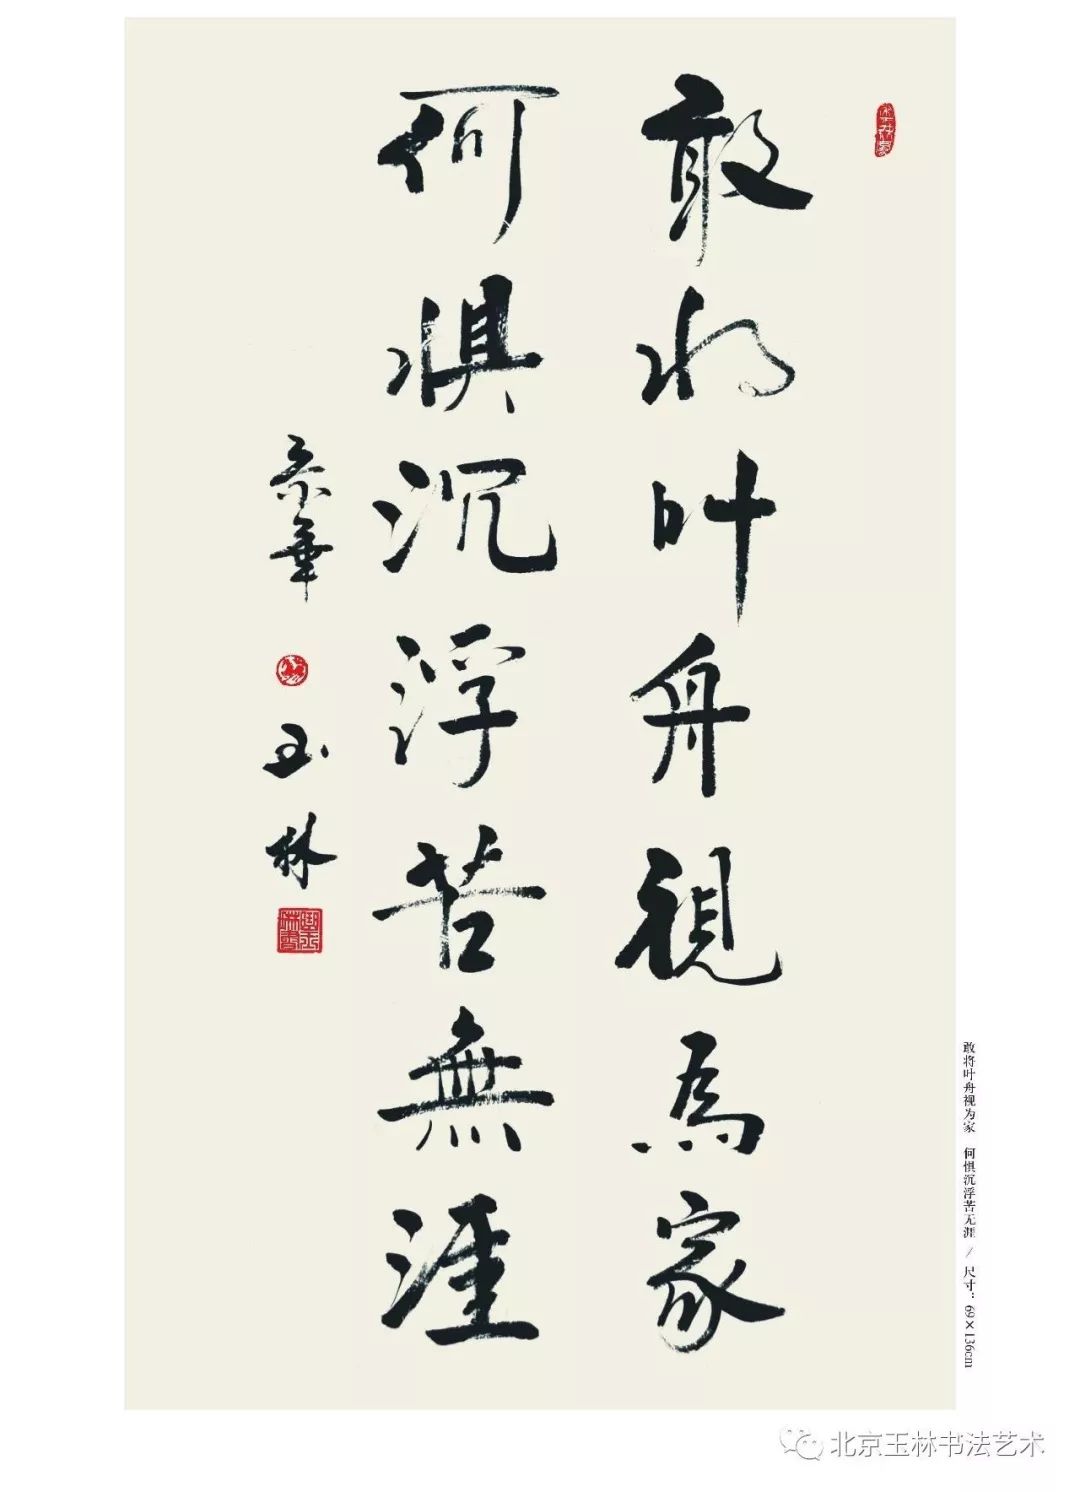 敢将叶舟视為家
何惧沉浮苦無涯
京華
玉林
敢将叶舟视为家 何惧沉浮苦无涯 / 尺寸：69×136cm
北京玉林书法艺术